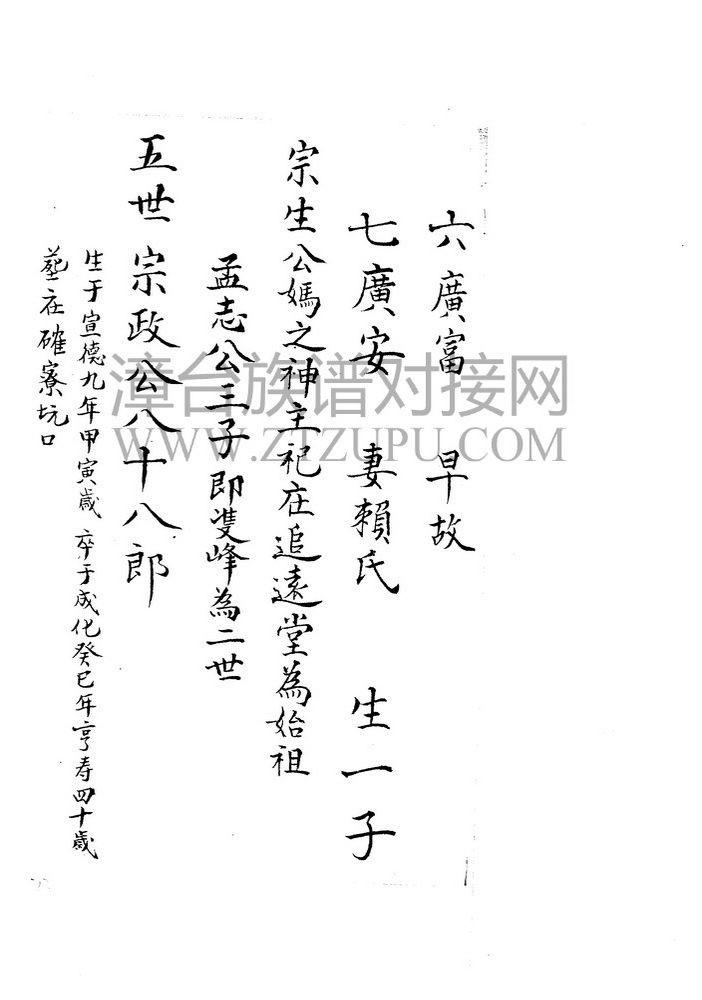 六廣富 早故
七廣安 妻賴氏 生一子
宗生公媽之神主祀在追遠堂為始祖
孟志公三子即雙峰為二世
五世宗政公八十八郎
生于宣德九年甲寅歲 卒于成化癸巳年亨寿四十歲
塟在確寮坑口
漳台族谱对接网
WWW.ZTZUPU.COM